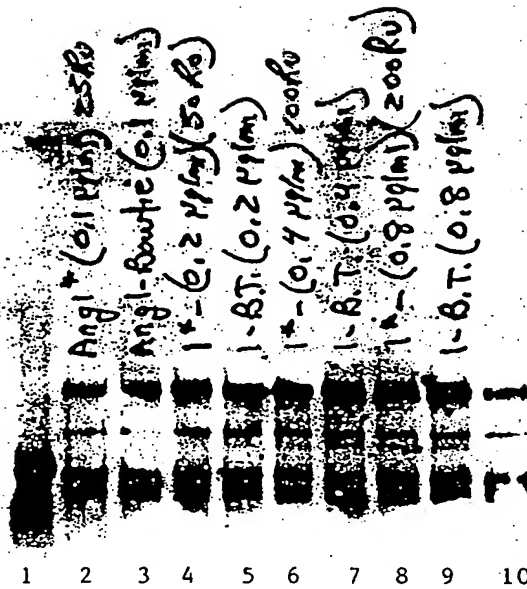 Ang1* (0.1 µg/ml) 25RU
Ang1-Bowtie (0.1 µg/ml)
1*-(0.2 µg/ml)(50 RU)
1-B.T. (0.2 µg/ml)
1*-(0.4 µg/ml) 100RU
1-B.T. (0.4 µg/ml)
1*-(0.8 µg/ml)(200RU)
1-B.T. (0.8 µg/ml)
1 2 3 4 5 6 7 8 9 10